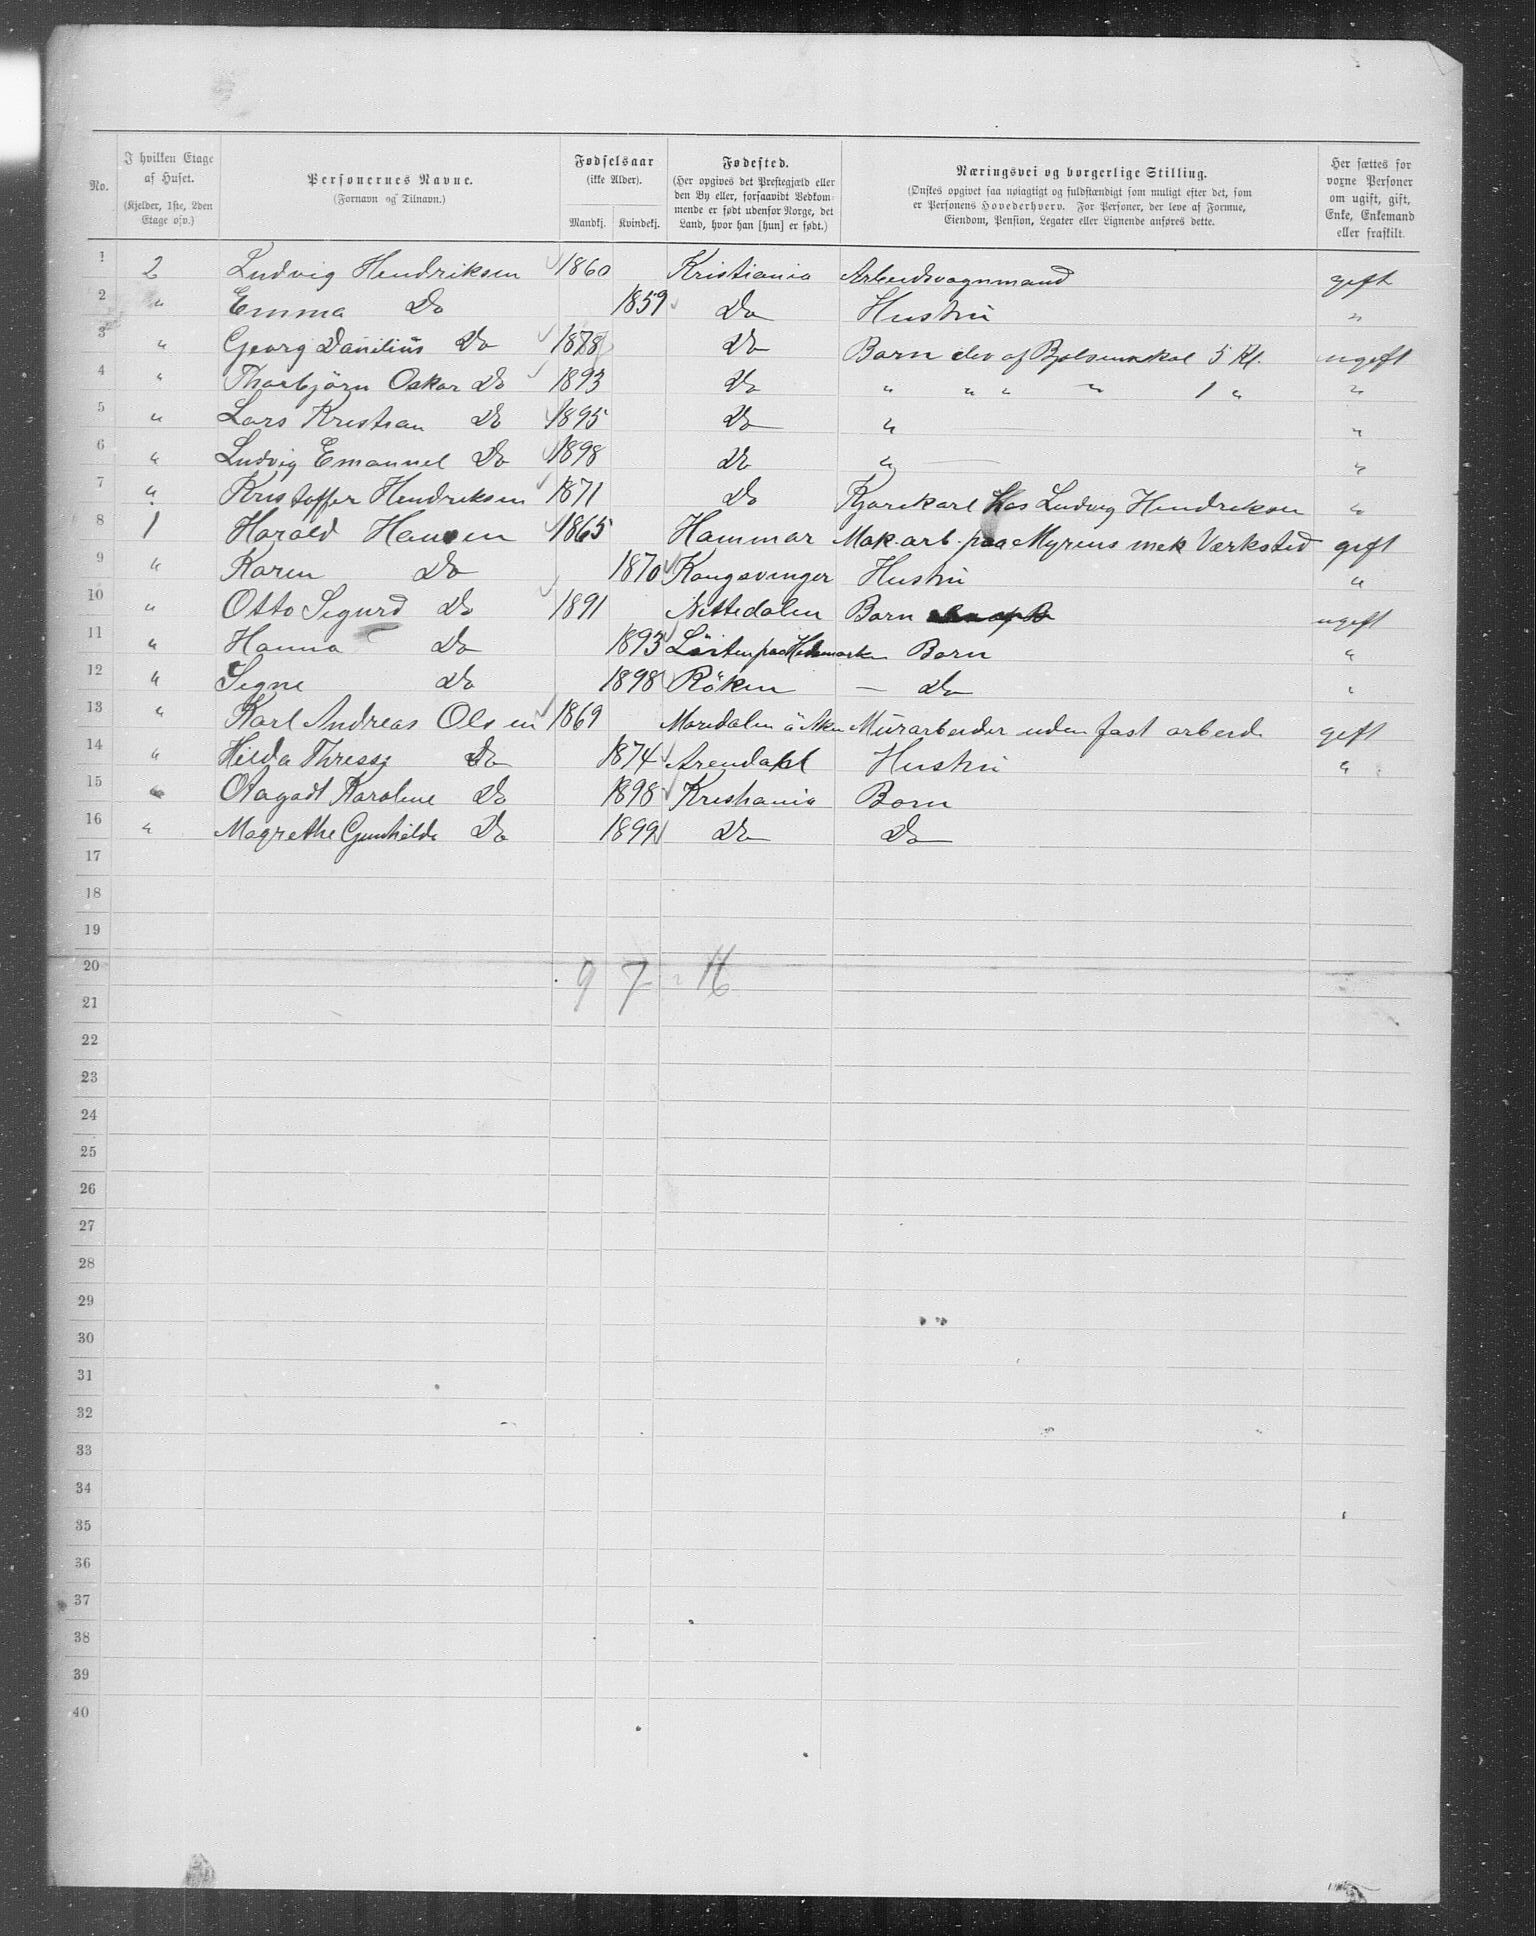 No.
I hvilken Etage af Huset.
(Kjelder, 1ste, 2den Etage osv.)
Personernes Navne.
(Fornavn og Tilnavn.)
Fødselsaar
(ikke Alder).
Mandkj. Kvindekj.
Fødested.
(Her opgives det Prestegjæld eller den By eller, forsaavidt Vedkommende er født udenfor Norge, det Land, hvor han [hun] er født.)
Næringsvei og borgerlige Stilling.
(Ønskes opgivet saa nøiagtigt og fuldstændigt som muligt efter det, som er Personens Hovederhverv. For Personer, der leve af Formue, Eiendom, Pension, Legater eller Lignende anføres dette.
Her sættes for voxne Personer om ugift, gift, Enke, Enkemand eller fraskilt.
1 2 Ludvig Hendriksen 1860 Kristiania Arbeidsvognmand gift
2 " Emma Do 1859 Do Hustru "
3 " Georg Danilius Do 1888 Do Barn elev af Bjølsenskol 5 Kl. ugift
4 " Thorbjörn Oskar Do 1893 Do " " " " 1 " "
5 " Lars Kristian Do 1895 Do " "
6 " Ludvig Emanuel Do 1898 Do " "
7 " Kristoffer Hendriksen 1871 Do Kjørekarl hos Ludvig Hendriksen "
8 1 Harald Hansen 1865 Hammar Mak. arb. paa Myrens mek Værksted gift
9 " Karen Do 1870 Kongsvinger Hustru "
10 " Otto Sigurd Do 1891 Nittedalen Barn ugift
11 " Hanna Do 1893 Löiten paa Hedemarken Barn "
12 " Signe Do 1898 Röken — Do "
13 " Karl Andreas Olsen 1869 Maridalen Murarbeider uden fast arbeid gift
14 " Hilda Do 1874 Arendahl Hustru "
15 " Karoline Do 1898 Kristiania Barn
16 " Magrethe Gunhilde Do 1899 Do Do
17
18
19
20 9 7 = 16
21
22
23
24
25
26
27
28
29
30
31
32
33
34
35
36
37
38
39
40